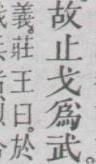 故止戈爲武
義莊王曰於